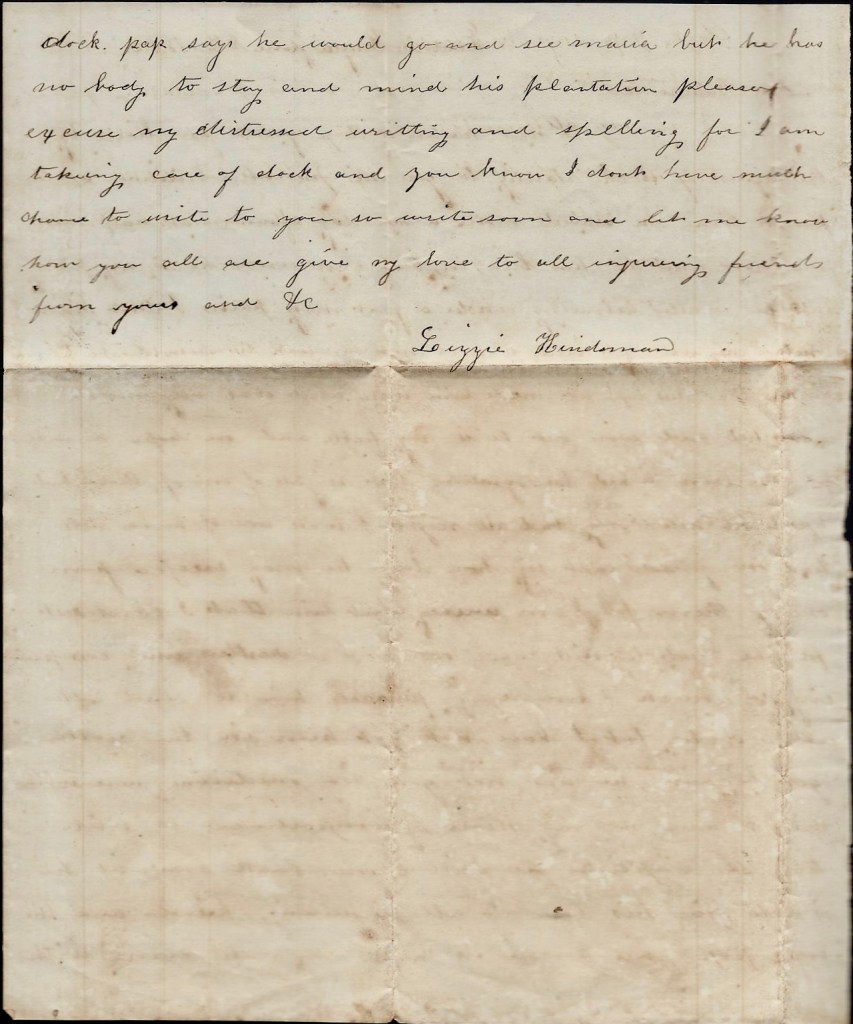 dock. pap says he would go and see maria but he has
no body to stay and mind his plantation please
excuse my distressed writting and spelling for I am
takeing care of dock and you know I dont have much
chance to write to you so write soon and let me know
how you all are give my love to all inquireing friends
from yours and &c
Lizzie Hindsman